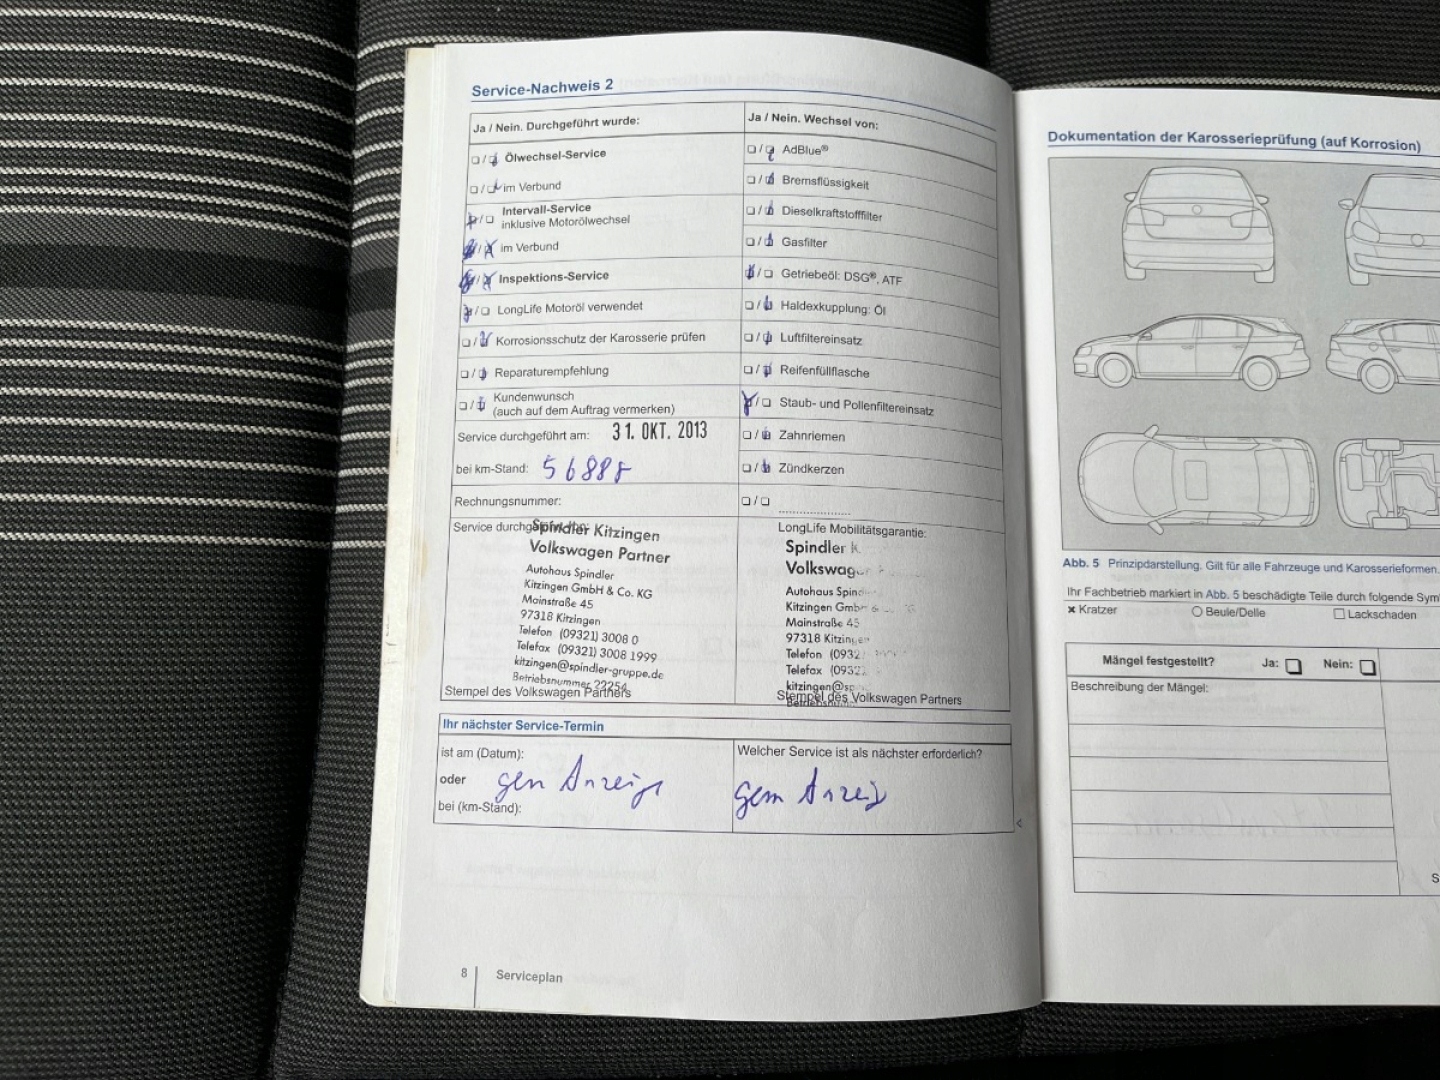 Service-Nachweis 2
Ja / Nein. Durchgeführt wurde:
Ölwechsel-Service
im Verbund
Intervall-Service
inklusive Motorölwechsel
im Verbund
Inspektions-Service
LongLife Motoröl verwendet
Korrosionsschutz der Karosserie prüfen
Reparaturempfehlung
Kundenwunsch
(auch auf dem Auftrag vermerken)
Service durchgeführt am: 31. OKT. 2013
bei km-Stand:
Rechnungsnummer:
Ja / Nein. Wechsel von:
AdBlue®
Bremsflüssigkeit
Dieselkraftstofffilter
Gasfilter
Getriebeöl: DSG®, ATF
Haldexkupplung: Öl
Luftfiltereinsatz
Reifenfüllflasche
Staub- und Pollenfiltereinsatz
Zahnriemen
Zündkerzen
Service
Spindler Kitzingen
Volkswagen Partner
Autohaus Spindler
Kitzingen GmbH & Co. KG
Mainstraße 45
97318 Kitzingen
Telefon (09321) 3008 0
Telefax (09321) 3008 1999
kitzingen@spindler-gruppe.de
Betriebsnummer 22254
Stempel des Volkswagen Partners
LongLife Mobilitätsgarantie:
Spindler
Autohaus
Kitzingen
Mainstraße 45
97318
Telefon
Telefax
Stempel des Volkswagen Partners
Ihr nächster Service-Termin
ist am (Datum):
oder gem Anzeige
bei (km-Stand):
Welcher Service ist als nächster erforderlich?
gem
8 Serviceplan
Dokumentation der Karosserieprüfung (auf Korrosion)
Abb. 5 Prinzipdarstellung. Gilt für alle Fahrzeuge und Karosserieformen.
Ihr Fachbetrieb markiert in Abb. 5 beschädigte Teile durch folgende
Kratzer Beule/Delle Lackschaden
Mängel festgestellt? Ja: Nein:
Beschreibung der Mängel: